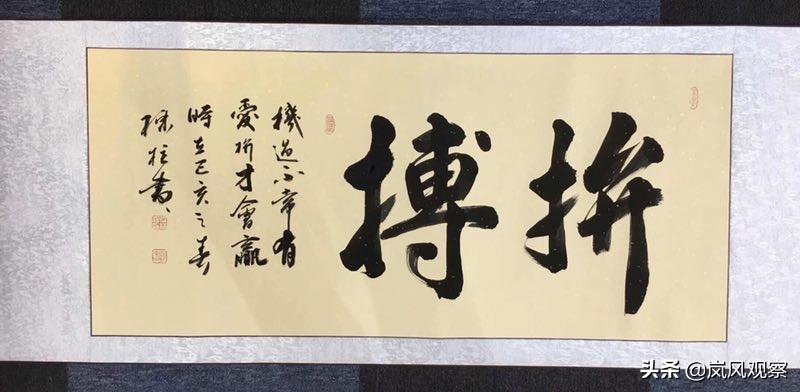 拚搏
機遇不常有
愛拚才會贏
時在己亥之春
柱書
头条 @岚风观察